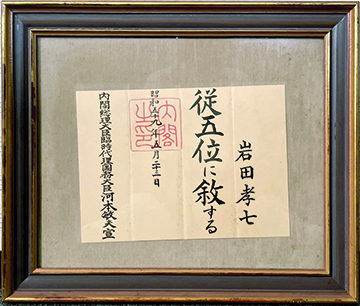 岩田孝七
従五位に敘する
昭和五十九年五月二十三日
内閣之印
内閣総理大臣臨時代理国務大臣河本敏夫宣